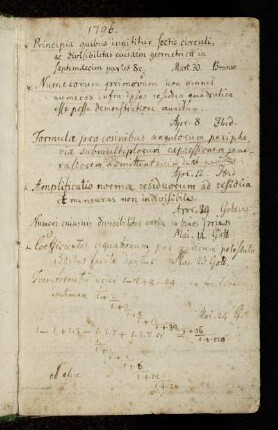 1796.
Principia quibus innititur sectio circuli,
ac divisibilitas eiusdem geometrica in
septemdecim partes &c. Mart. 30. Brunsv.
Numerorum primorum non omnes
numeros infra ipsos residua quadratica
esse posse demonstratione munitum.
Apr. 8. Ibid.
Formulae pro cosinibus angulorum peripheriae
submultiplorum expressionem
generaliorem admittent
Apr. 12. Ibid.
Amplificatio normae residuorum ad residua
et mensuras non indivisibiles.
Apr. 29. Gotting.
Numeri cuiusvis divisibilitas varia in binos primos
Mai. 14. Gott.
Coefficientes aequationum per radicum potestates
additas facile dantur. Mai. 23. Gott.
Transformatio seriei 1 - 2 + 8 - 64 in fractionem
continuam
1+2
1+2
1+8
Mai. 24. G.
1 - 1 + 1.3 - 1.3.7 + 1.3.7.15
1+2
1+6
1+12
1+28
1+128
et aliae